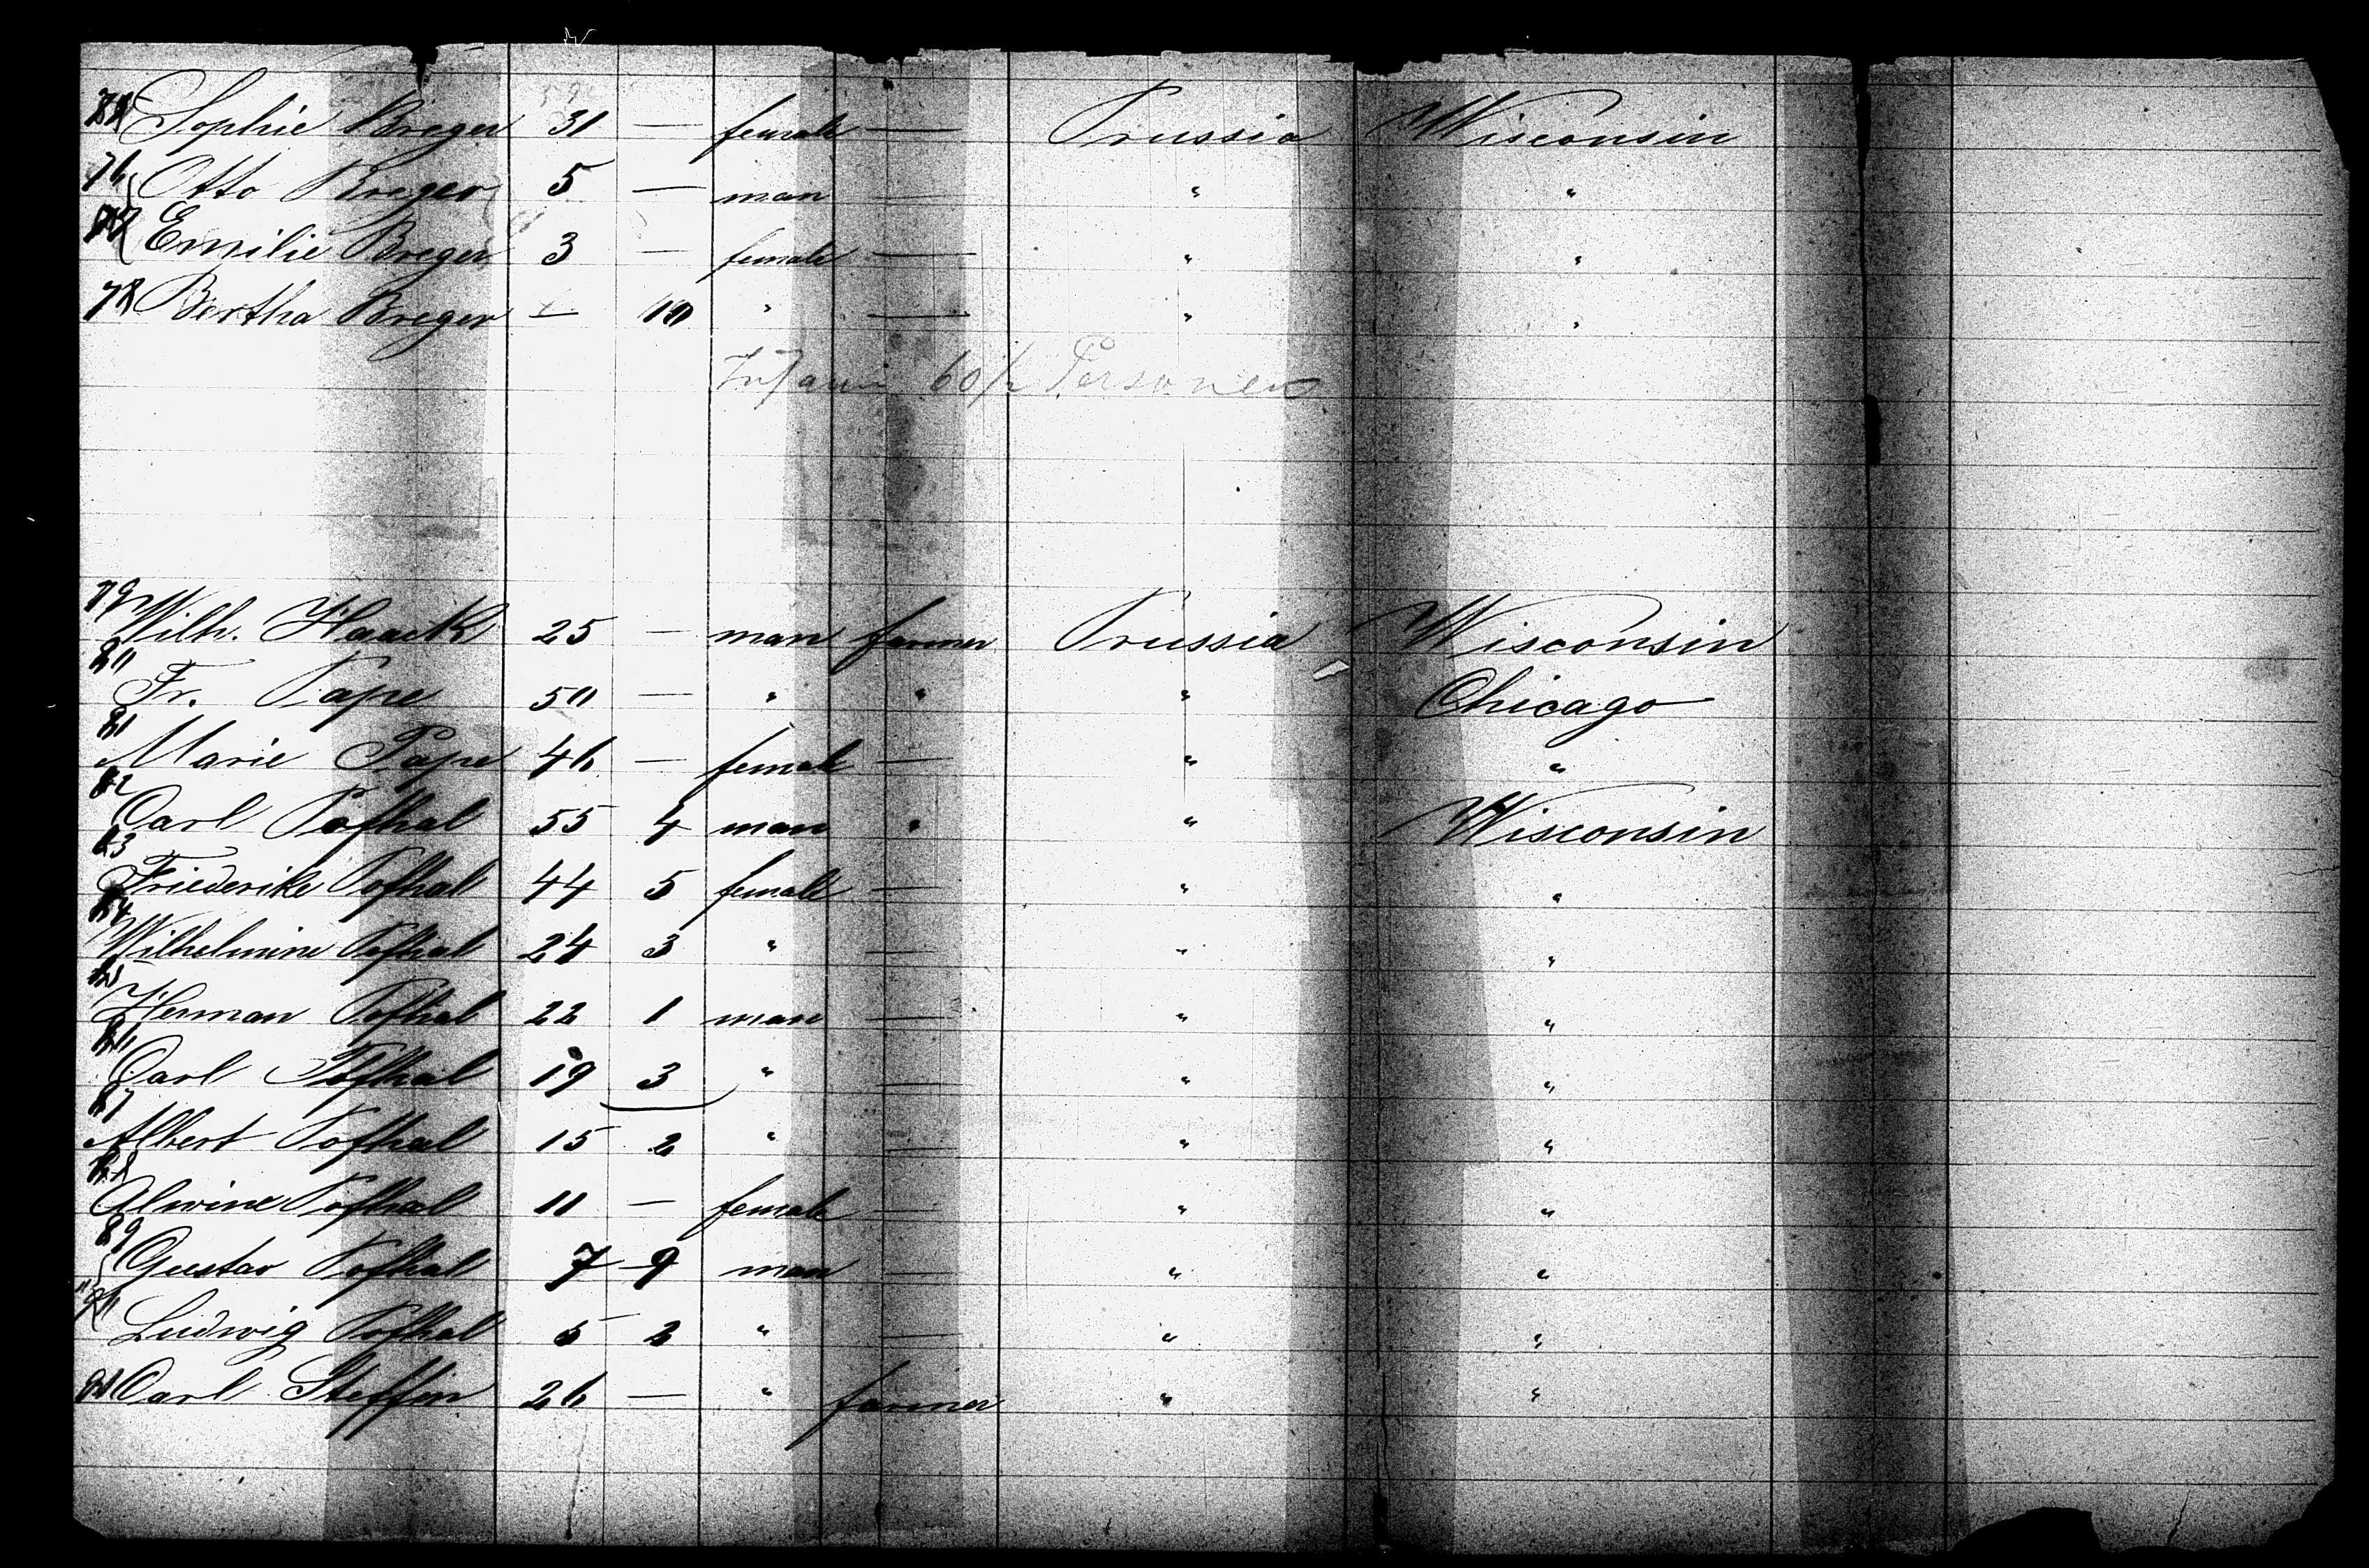 Sophie Breger 31 — female — Prussia Wisconsin
76 Otto Breger 5 — man — " "
77 Emilie Breger 3 — female — " "
78 Bertha Breger — 10 " — " "
60½ Personen
79 Wilh. Haack 25 — man farmer Prussia Wisconsin
80 Fr. Pape 50 — " " " Chicago
81 Marie Pape 46 — female — " "
82 Carl Pofhal 55 4 man " " Wisconsin
83 Friederike Pofhal 44 5 female — " "
84 Wilhelmine Pofhal 24 3 " — " "
85 Herman Pofhal 22 1 man — " "
86 Carl Pofhal 19 3 " — " "
87 Albert Pofhal 15 2 " — " "
88 Alwine Pofhal 11 — female — " "
89 Gustav Pofhal 7 9 man — " "
90 Ludwig Pofhal 5 2 " — " "
91 Carl Steffin 26 — " farmer " "